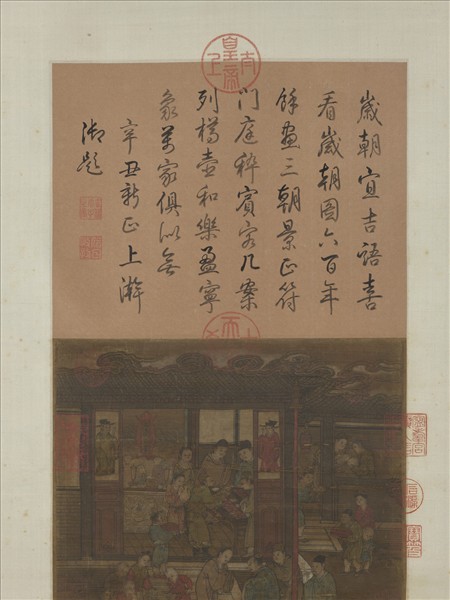 歲朝宜吉語喜
看歲朝圖六百年
餘畫三朝景正符
門庭稡賓客几案
列樽壺和樂盈寧
象萬家俱似無
辛丑新正上澣
御題